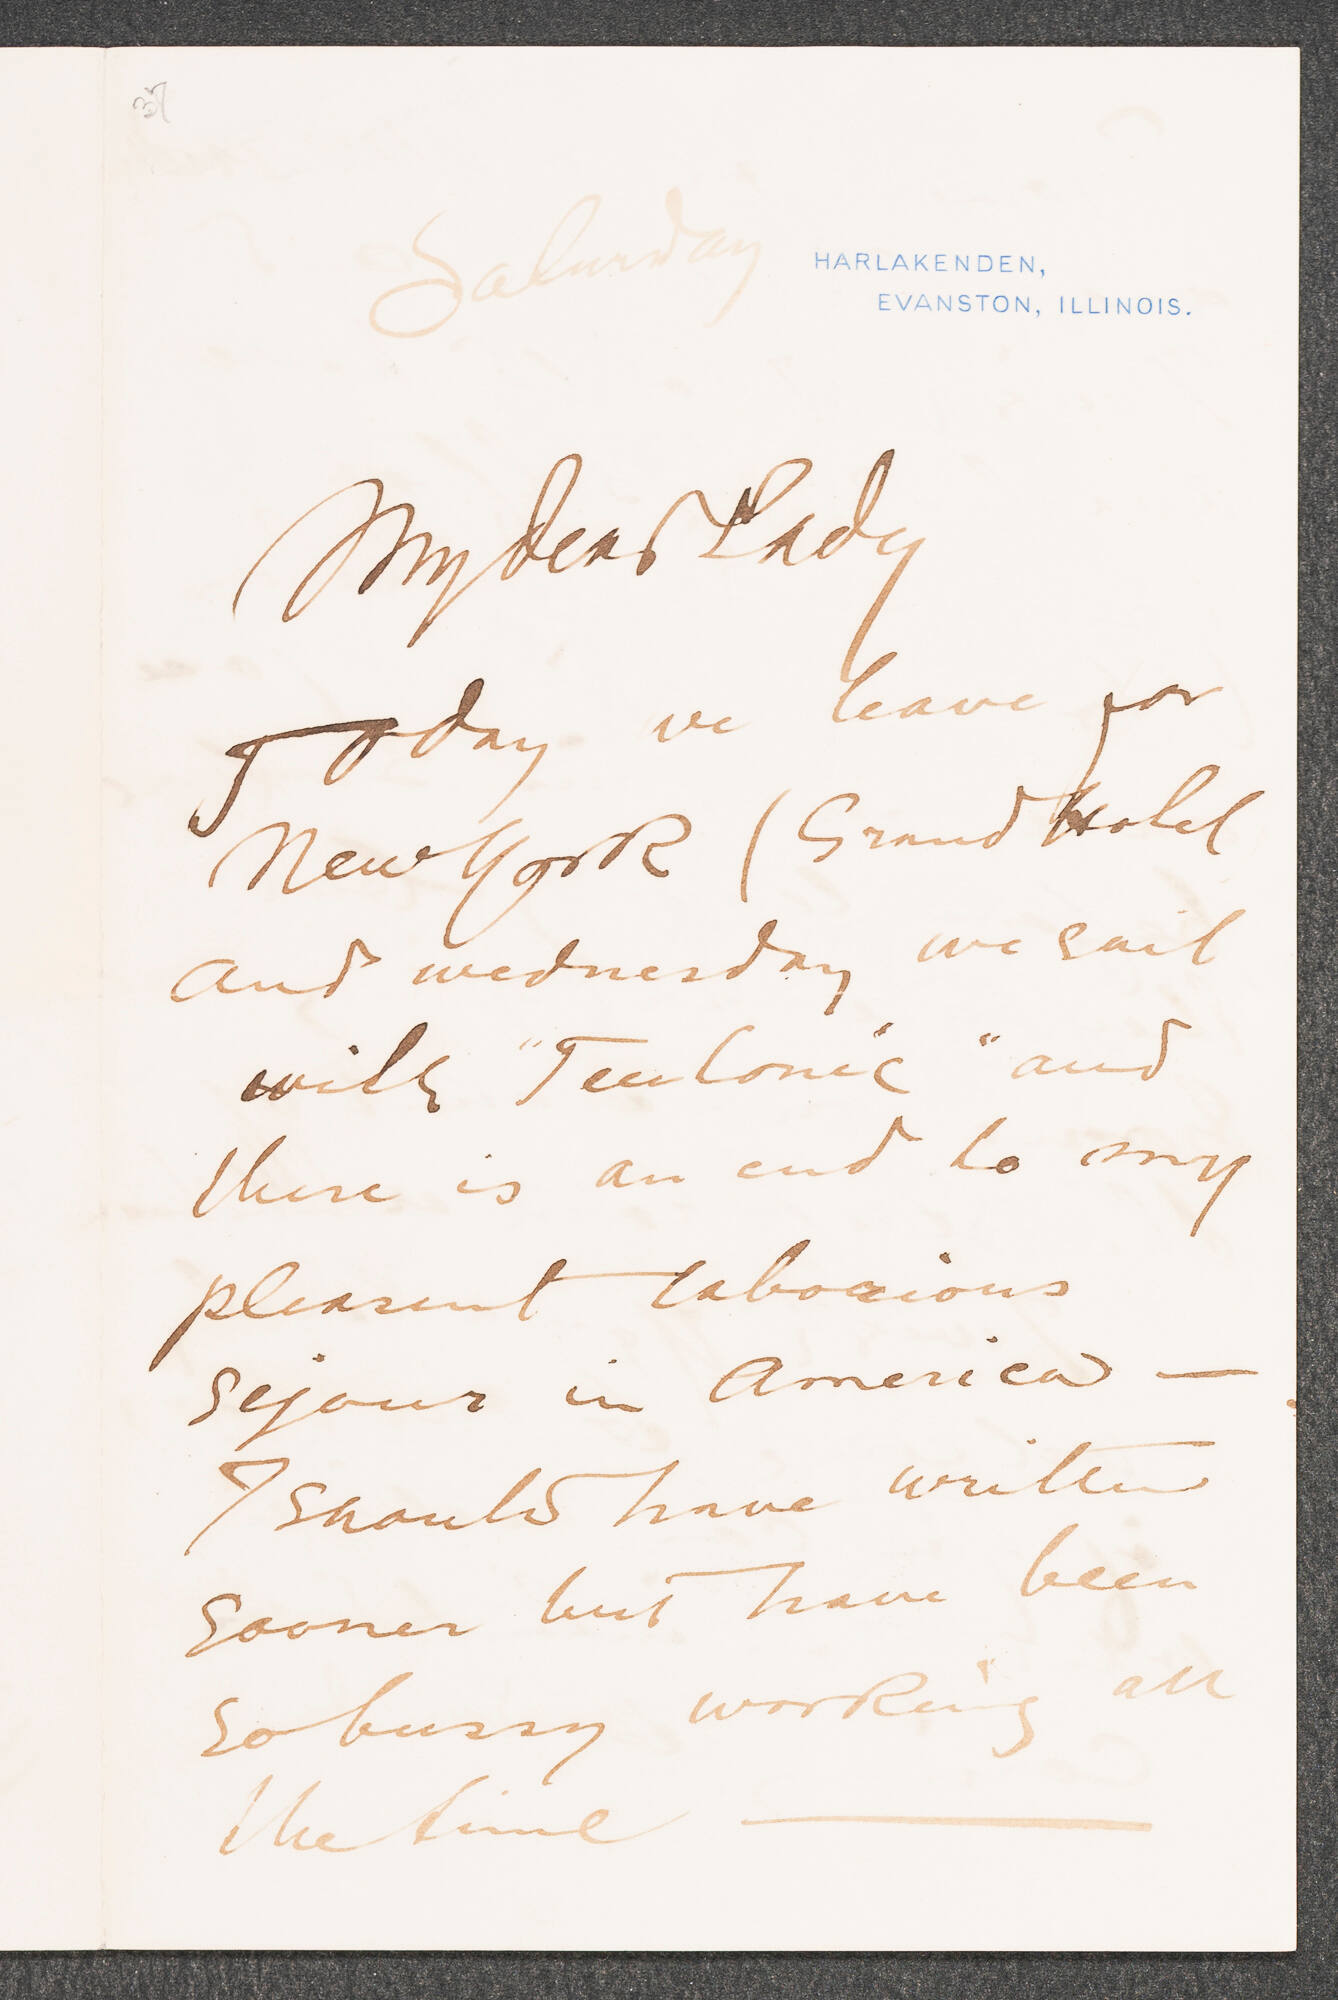 37
Saturday
HARLAKENDEN,
EVANSTON, ILLINOIS.
My dear Lady
Today we leave for
New York (Grand Hotel
and wednesday we sail
with "Teutonic" and
there is an end to my
pleasent laborious
sejour in America —
I should have written
sooner but have been
so bussy working all
the time —